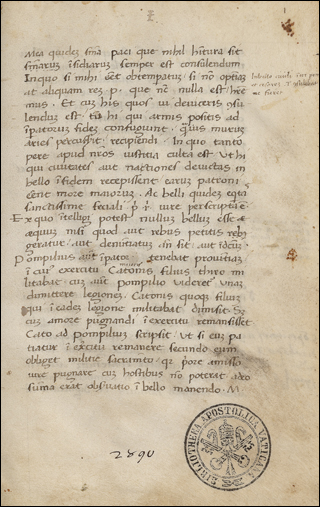 Mea quidez sñia paci que nihil hitura sit
insidiaruz semper est consulendum.
In quo si mihi eet obtempatuz si nõ optiaz
at aliquam rez p. que nc nulla est hre
mus. Et cuz his quos ui deuiceris ɔsu
lendum est tũ hi qui armis positis ad
ipatoruz fidez confugiunt quis muruz
aries percusserit recipiendi. In quo tanto
pere apud nros iustitia culta est ut hi
qui ciuitates aut nationes deuictas
bello i fidem recepissent earuz patroni
more maiorum. Ac belli quidez eqtas
sanctissime feciali p. r. iure perscripta e.
Ex quo itelligi potest nulluz belluz esse
equuz nisi quod aut rebus petitis
geratur aut denuntiatuz an sit aut idictuz.
Pompilius aut ipator tenebat prouitiaz
i cui exercitu Catonis filius tiro mi
litabat cuz aut pompilio uideret unaz
dimittere legionez. Catonis quoqz filiuz
qui i eadez legione militabat dimisit. Sz
cuz amore pugnandi i exercitu remansisset
Cato ad pompilium scripsit ut si euz pa
tiatur i exercitu remanere secundo eum
obliget militie sacramto. qz priore amisso
iure pugnare cuz hostibus no poterat adeo
suma erat obseruatio i bello mouendo. M
2890
BIBLIOTHECA APOSTOLICA VATICANA